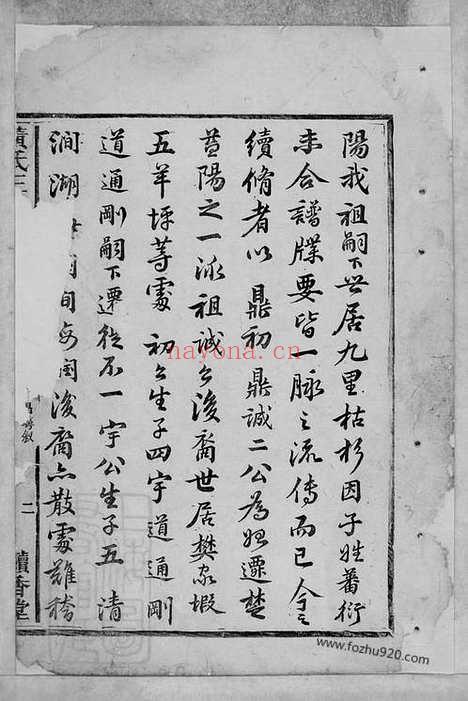 陽我祖嗣下世居九里枯杉因子姓蕃衍
未合譜牒要皆一脉之流傳而已今之
續脩者以鼎初鼎誠二公為始遷楚
益陽之一派祖誠公後裔世居樊家塅
五羊坪等處初公生子四宇道通剛
道通剛嗣下遷徙不一宇公生子五清
澗湖
後裔亦散處難稽
二
讀香堂
nayona.cn
www.fozhu920.com